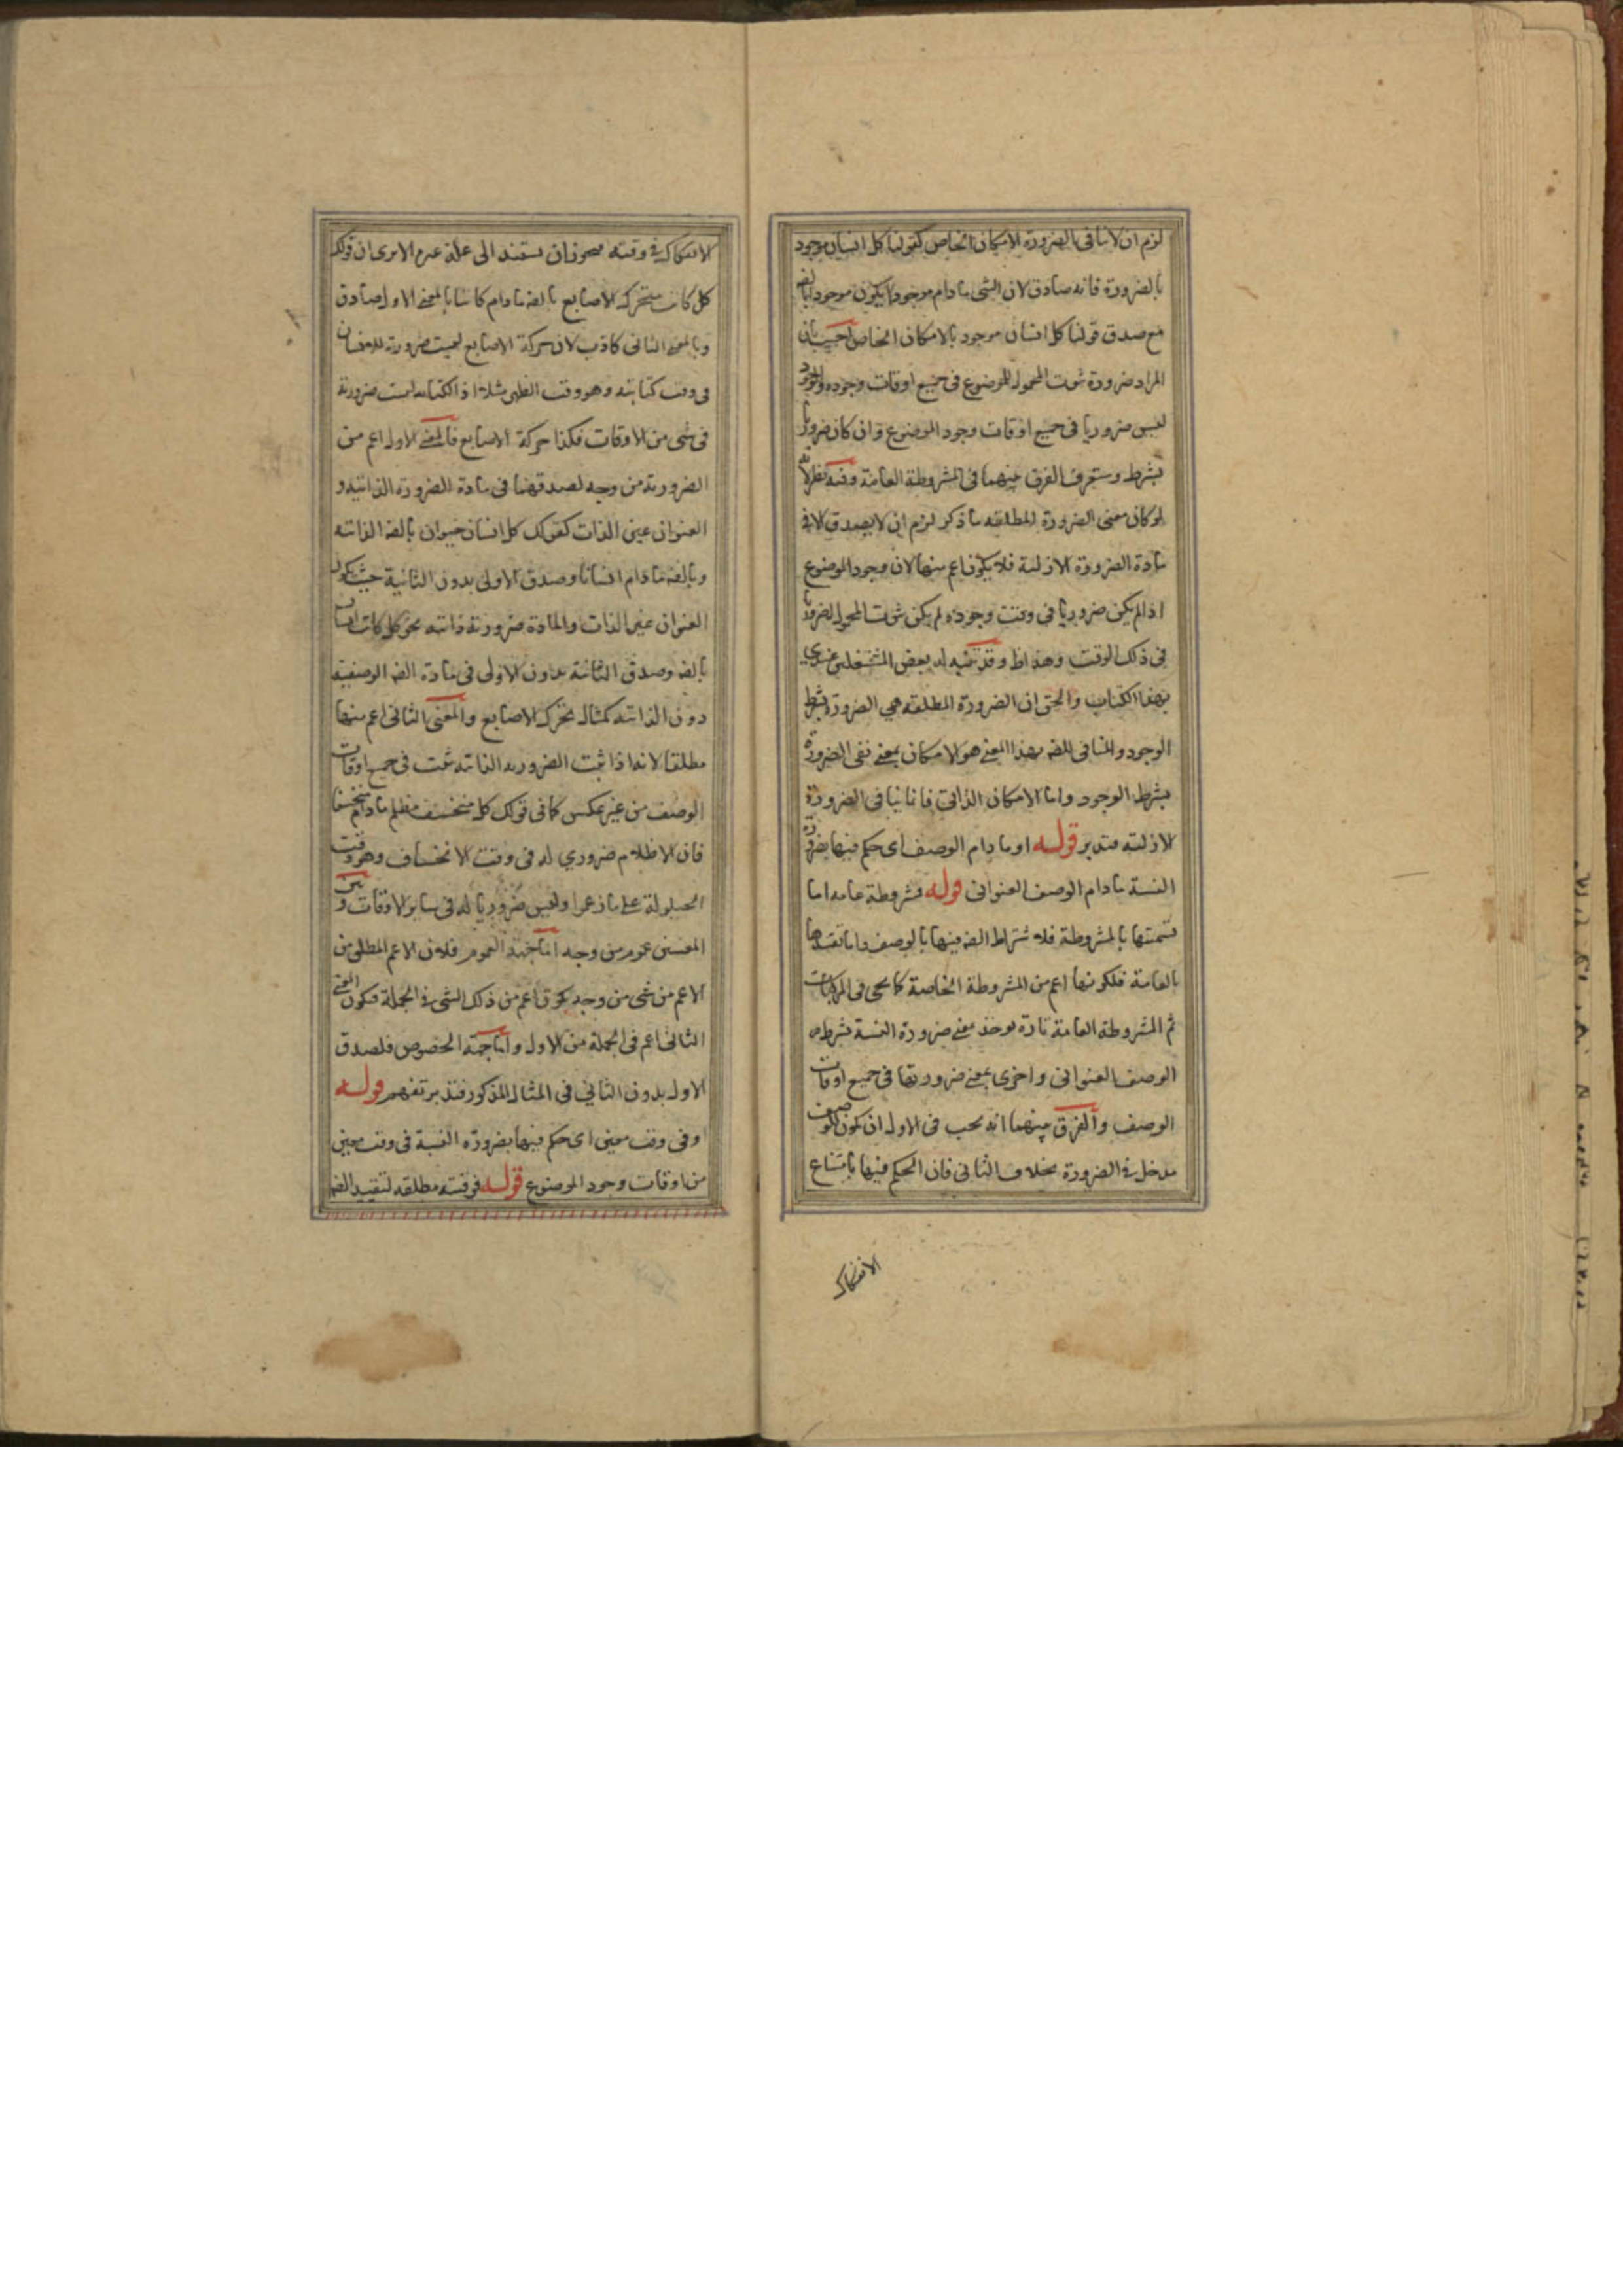 لزم ان لا ینافی بالضرورة الامکان الخاص کقولنا کل انسان موجود
بالضرورة فانه صادق لان الشی ما دام موجودا یکون موجودا بالضه
مع صدق قولنا کل انسان موجود بالامکان الخاص اجیب بان
المراد ضرورة ثبوت المحمول للموضوع فی جمیع اوقات وجوده والوجود
لیس ضروریا فی جمیع اوقات وجود الموضوع وان کان ضروریا
بشرط وستعرف الفرق بینهما فی المشروطة العامة وفیه نظر لانه
لو کان معنی الضرورة المطلقه ما ذکر لزم ان لا یصدق الا فی
مادة الضرورة الازلیة فلا یکون اعم منها لان وجود الموضوع
اذا لم یکن ضروریا فی وقت وجوده لم یکن ثبوت المحمول له ضروریا
فی ذلک الوقت وهذا ظ وقد تنبه له بعض المشتغلین عندی
بهذا الکتاب والحق ان الضرورة المطلقه هی الضرورة بشرط
الوجود والمنافی للضه بهذا المعنی هو الامکان بمعنی نفی الضرورة
بشرط الوجود واما الامکان الذاتی فانما ینافی الضرورة
الازلیه فتدبر قوله او ما دام الوصف ای حکم فیها بضرورة
النسبة ما دام الوصف العنوانی قوله فمشروطة عامه اما
تسمیتها بالمشروطة فلاشتراط الضه فیها بالوصف واما تقییدها
بالعامة فلکونها اعم من المشروطة الخاصة کما یجی فی المرکبات
ثم المشروطه العامة تارة یوخذ بمعنی ضرورة النسبة بشرط
الوصف العنوانی واخری بمعنی ضرورتها فی جمیع اوقات
الوصف والفرق بینهما انه یجب فی الاول ان یکون للوصف
مدخل فی الضرورة بخلاف الثانی فان الحکم فیها بامتناع
الانفکاک
الانفکاک فی وقته فیجوز ان یستند الی علة عدم الا تری ان قولک
کل کاتب متحرک الاصابع بالضه ما دام کاتبا بالمعنی الاول صادق
وبالمعنی الثانی کاذب لان حرکة الاصابع لیست ضروریة للانسان
فی وقت کتابته وهو وقت الظهر مثلا اذ الکتابه لیست ضروریة
فی شی من الاوقات فکذا حرکة الاصابع فالمعنی الاول اعم من
الضروریة من وجه لصدقهما فی مادة الضرورة الذاتیه و
العنوان عین الذات کقولک کل انسان حیوان بالضه الذاتیه
وبالضه ما دام انسانا وصدق الاولی بدون الثانیة حیث یکون
العنوان غیر الذات والمادة ضروریة ذاتیه نحو کل کاتب انسان
بالضه وصدق الثانیة بدون الاولی فی مادة الضه الوصفیه
دون الذاتیه کمثال تحرک الاصابع والمعنی الثانی اعم منها
مطلقا لانه اذا ثبت الضروره الذاتیه ثبت فی جمیع اوقات
الوصف من غیر عکس کما فی قولک کل منخسف مظلم ما دام منخسفا
فان الاظلام ضروری له فی وقت الانخساف وهو وقت
الحیلولة علی ما زعموا ولیس ضروریا له فی سایر الاوقات و بین
المعنیین عموم من وجه اما جهة العموم فلان الاعم المطلق من
الاعم من شی من وجه یکون اعم من ذلک الشی فی الجملة فیکون المعنی
الثانی اعم فی الجملة من الاول واما جهة الخصوص فلصدق
الاول بدون الثانی فی المثال المذکور فتدبر تفهم قوله
او فی وقت معین ای حکم فیها بضرورة النسبة فی وقت معین
من اوقات وجود الموضوع قوله فوقتیه مطلقه لتقیید الضه